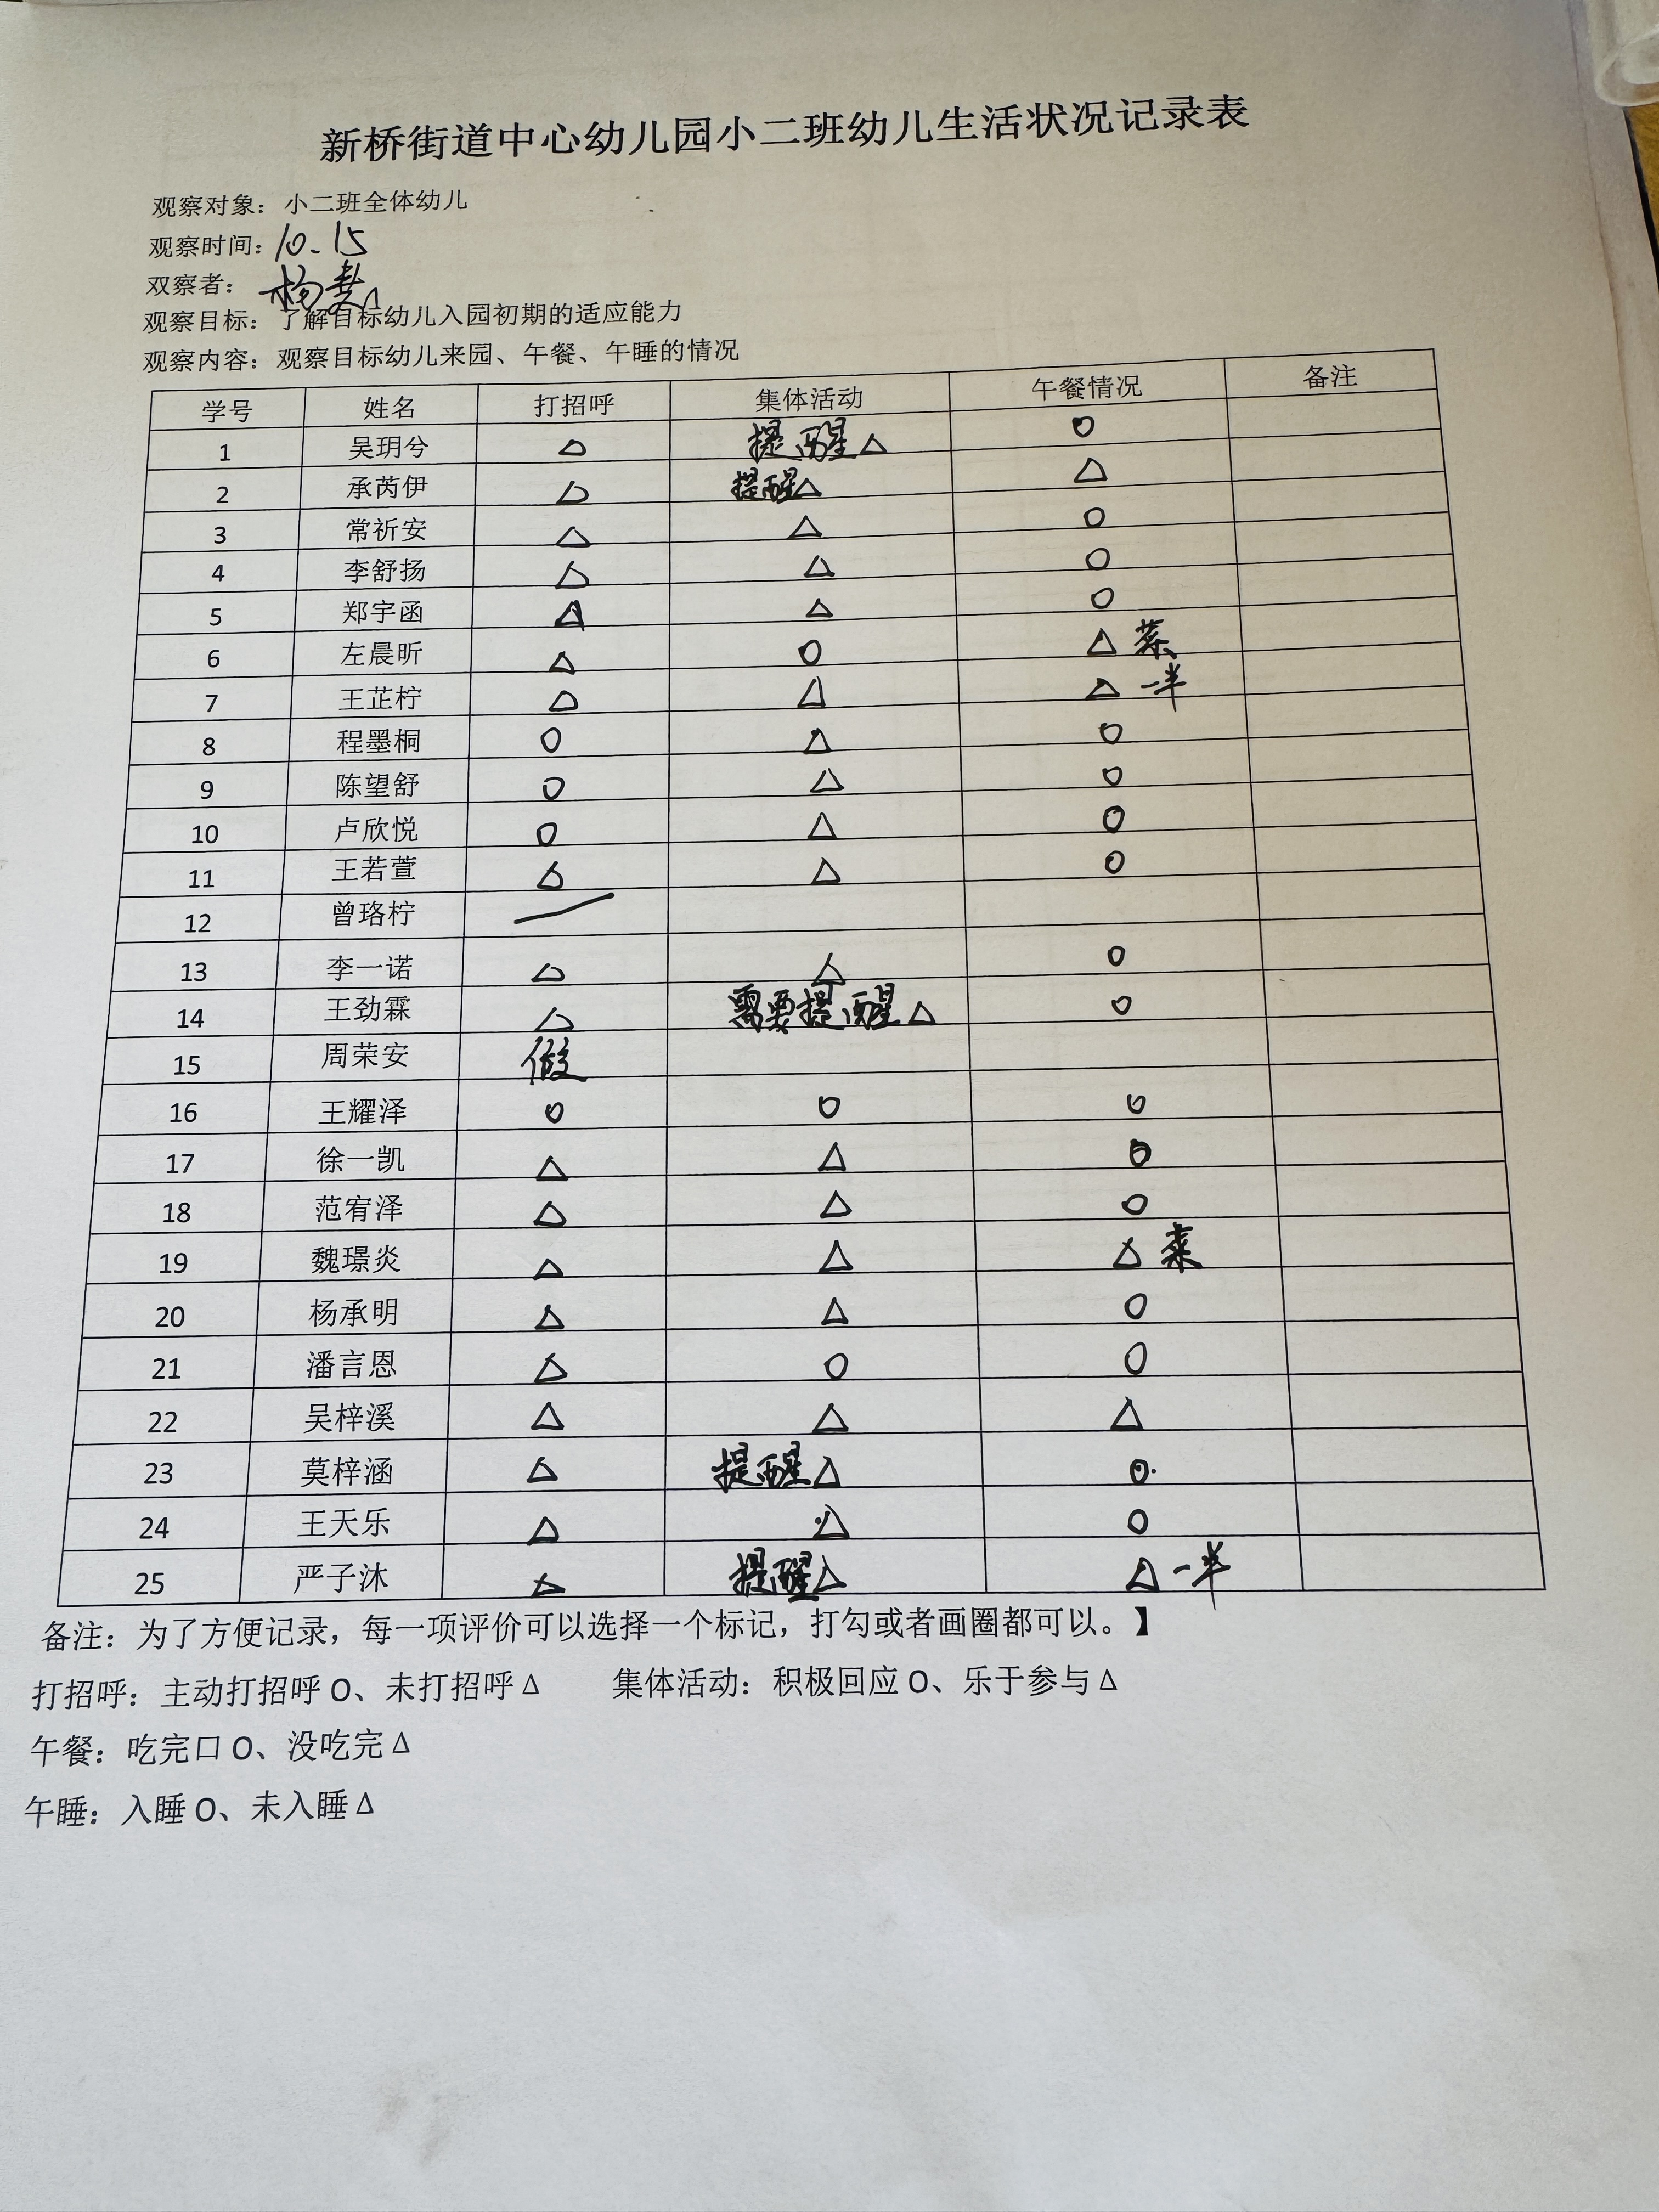 新桥街道中心幼儿园小二班幼儿生活状况记录表
观察对象：小二班全体幼儿
观察时间：10.15
双察者：杨
观察目标：了解目标幼儿入园初期的适应能力
观察内容：观察目标幼儿来园、午餐、午睡的情况
学号 姓名 打招呼 集体活动 午餐情况 备注
1 吴玥兮 △ 提醒△ O
2 承芮伊 △ 提醒△ △
3 常祈安 △ △ O
4 李舒扬 △ △ O
5 郑宇函 △ △ O
6 左晨昕 △ O △ 菜
7 王芷柠 △ △ △ 一半
8 程墨桐 O △ O
9 陈望舒 O △ O
10 卢欣悦 O △ O
11 王若萱 △ △ O
12 曾珞柠 /
13 李一诺 △ △ O
14 王劲霖 △ 需要提醒△ O
15 周荣安
16 王耀泽 O O O
17 徐一凯 △ △ O
18 范宥泽 △ △ O
19 魏璟炎 △ △ △ 菜
20 杨承明 △ △ O
21 潘言恩 △ O O
22 吴梓溪 △ △ △
23 莫梓涵 △ 提醒△ O
24 王天乐 △ △ O
25 严子沐 △ 提醒△ △ 一半
备注：为了方便记录，每一项评价可以选择一个标记，打勾或者画圈都可以。】
打招呼：主动打招呼 O、未打招呼 Δ 集体活动：积极回应 O、乐于参与 Δ
午餐：吃完口 O、没吃完 Δ
午睡：入睡 O、未入睡 Δ